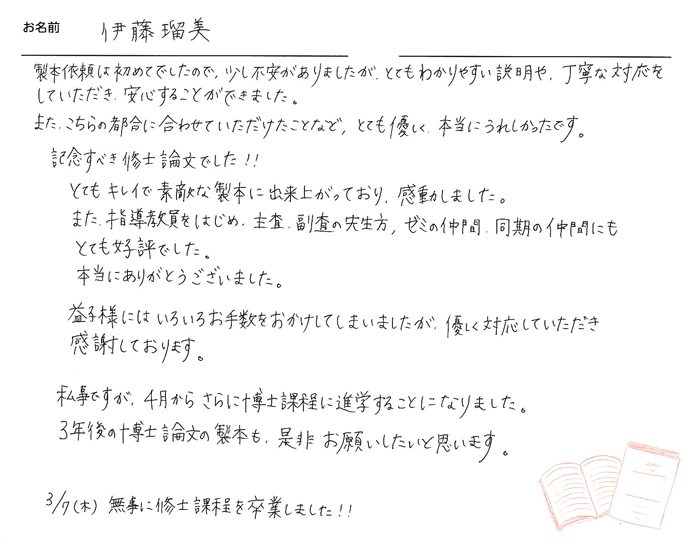 お名前 伊藤瑠美
製本依頼は初めてでしたので、少し不安がありましたが、とてもわかりやすい説明や、丁寧な対応を
していただき、安心することができました。
また、こちらの都合に合わせていただけたことなど、とても優しく、本当にうれしかったです。
記念すべき修士論文でした!!
とてもキレイで素敵な製本に出来上がっており、感動しました。
また、指導教員をはじめ、主査、副査の先生方、ゼミの仲間、同期の仲間にも
とても好評でした。
本当にありがとうございました。
益子様にはいろいろお手数をおかけしてしまいましたが、優しく対応していただき
感謝しております。
私事ですが、4月からさらに博士課程に進学することになりました。
3年後の博士論文の製本も、是非お願いしたいと思います。
3/7(木) 無事に修士課程を卒業しました!!